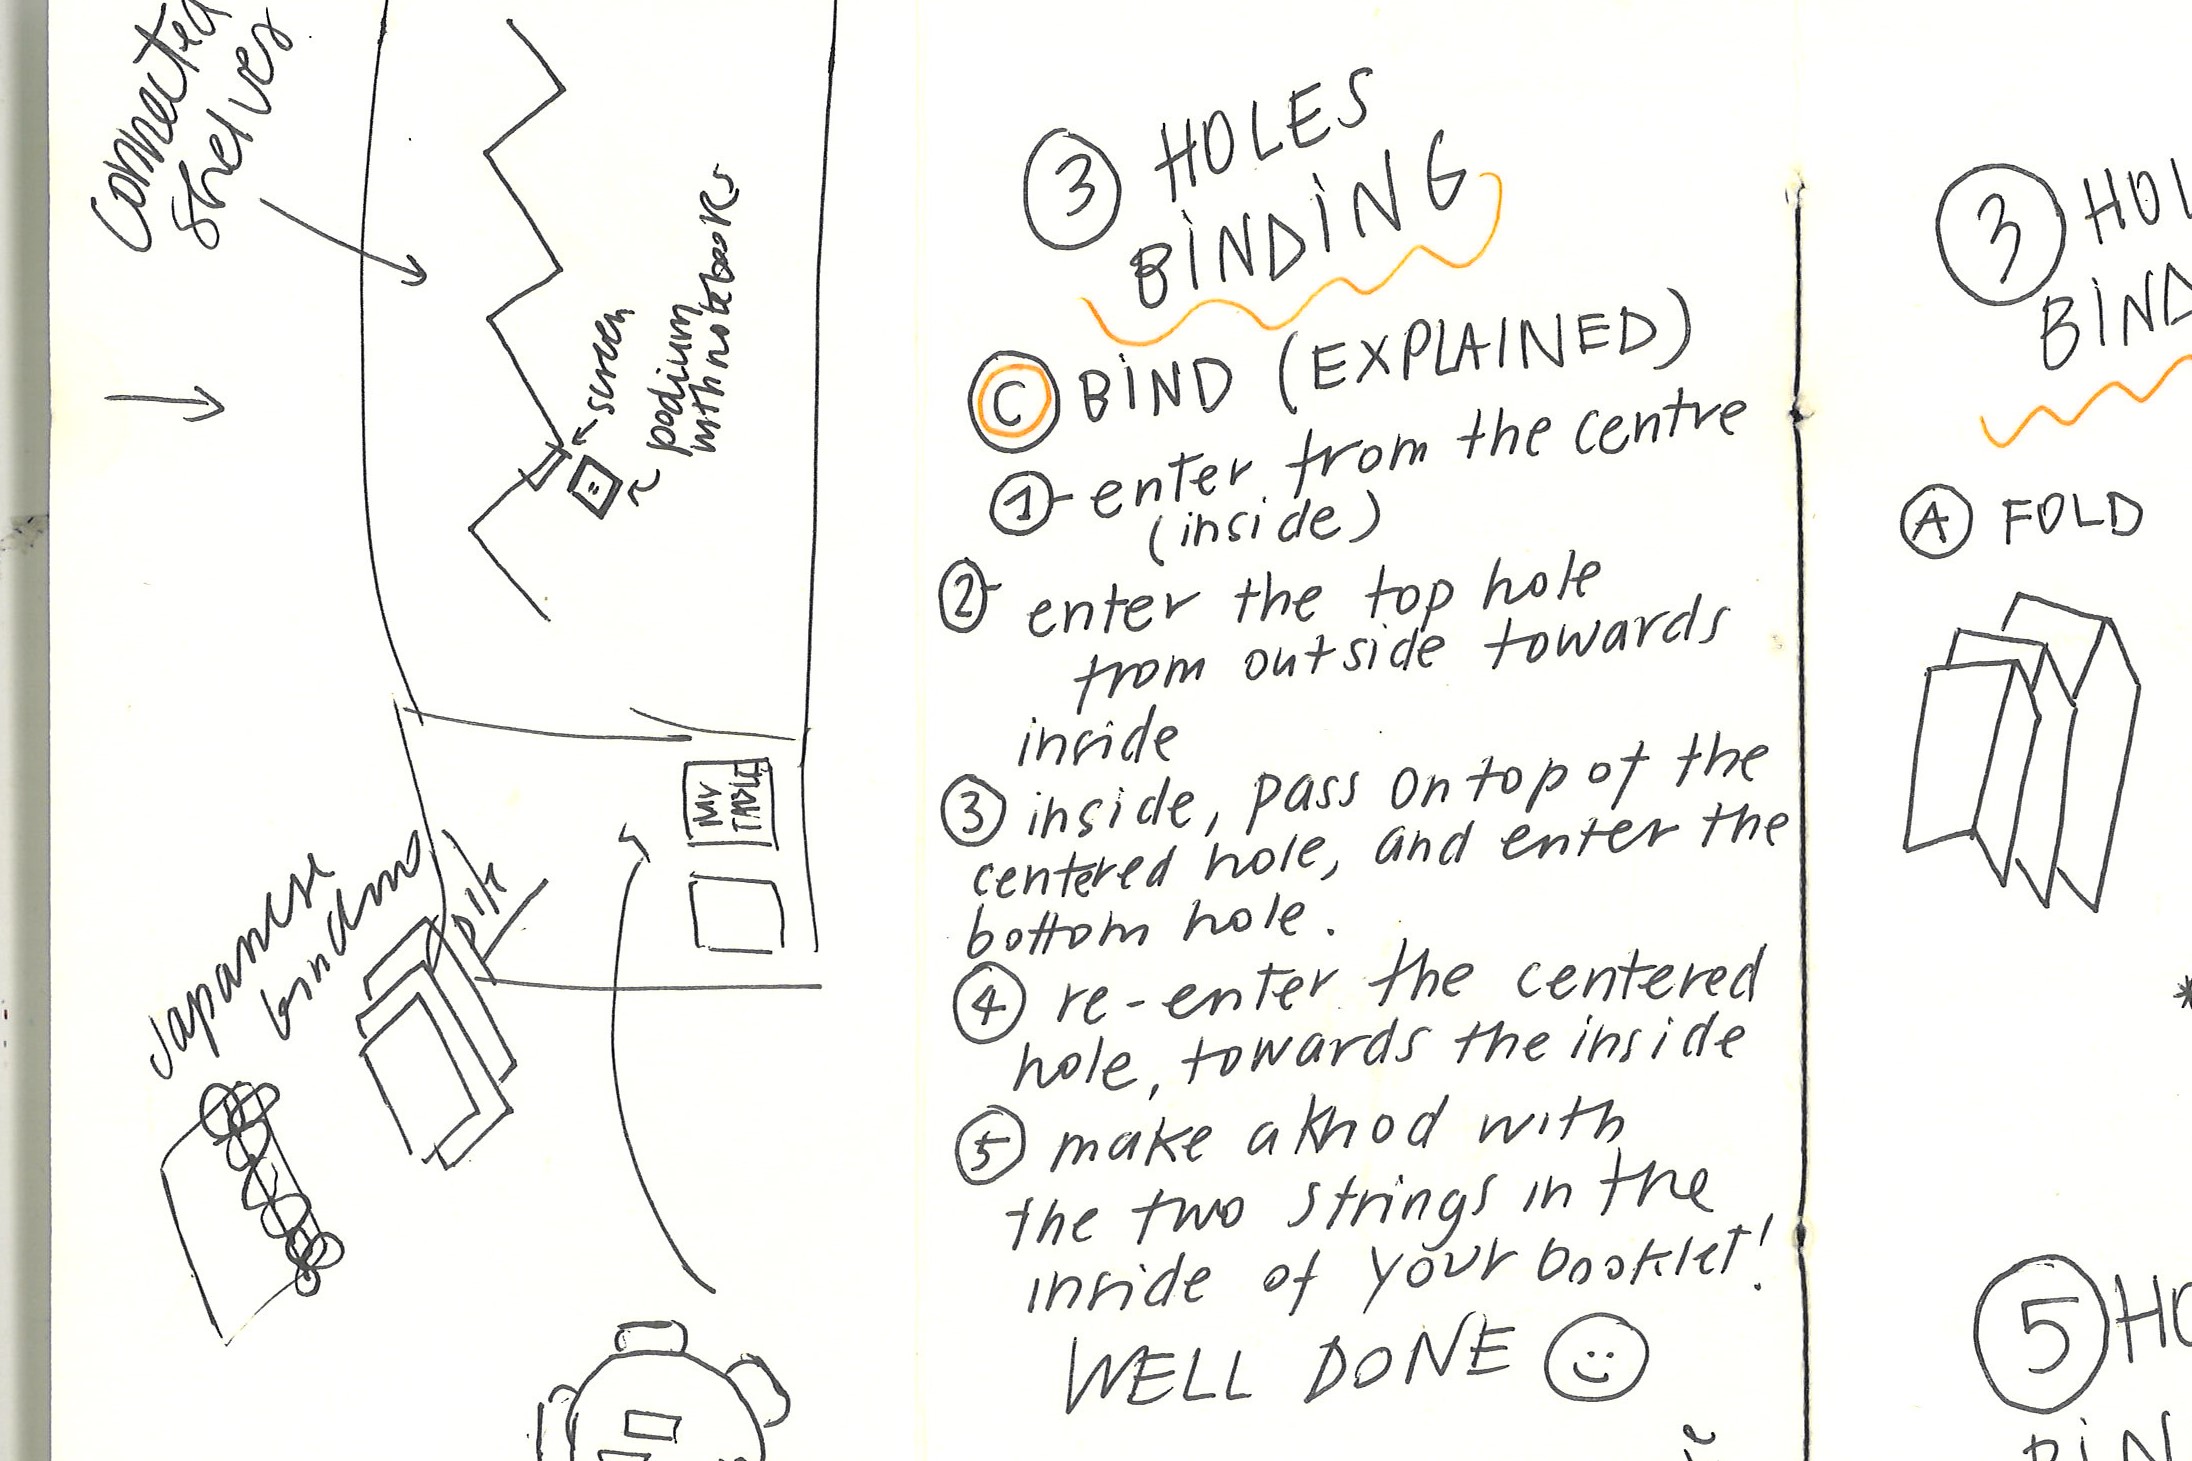 Connected
shelves
screen
podium
with notebooks
MY
TABLE
Japanese
3 HOLES
BINDING
C BIND (EXPLAINED)
1- enter from the centre
(inside)
2- enter the top hole
from outside towards
inside
3 inside, pass on top of the
centered hole, and enter the
bottom hole.
4 re-enter the centered
hole, towards the inside
5 make a knod with
the two strings in the
inside of your booklet!
WELL DONE
3 HOL
BIND
A FOLD
*
5 HO
BIN